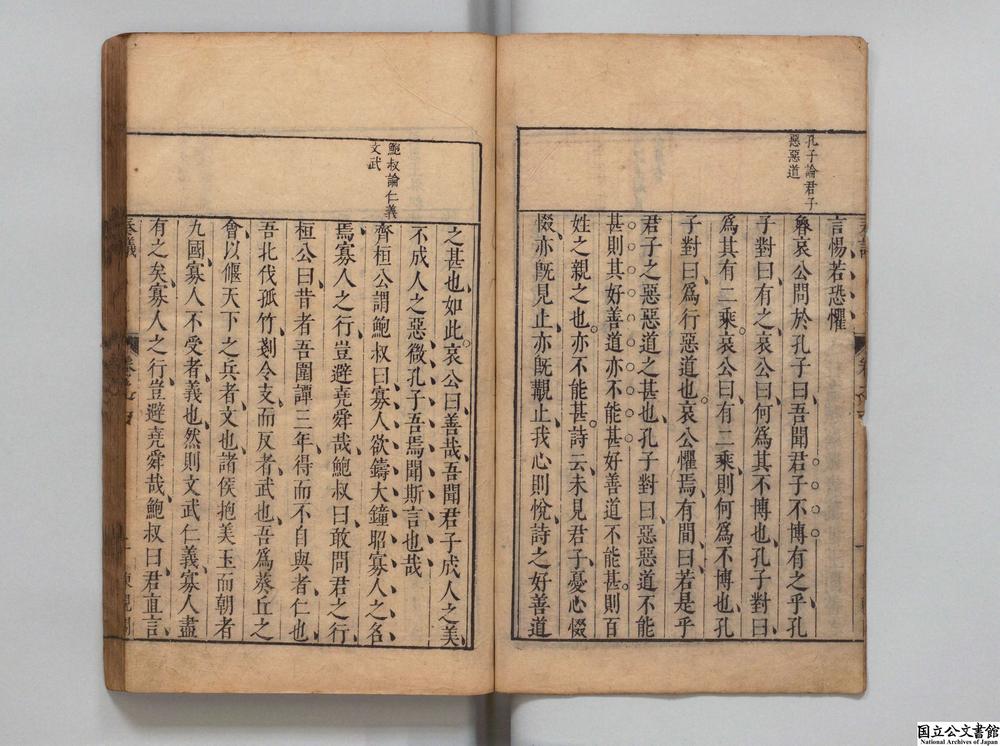 孔子論君子
惡惡道
言惕若恐懼
魯哀公問於孔子曰吾聞君子不博有之乎孔
子對曰有之哀公曰何爲其不博也孔子對曰
爲其有二乘哀公曰有二乘則何爲不博也孔
子對曰爲行惡道也哀公懼焉有間曰若是乎
君子之惡惡道之甚也孔子對曰惡惡道不能
甚則其好善道亦不能甚好善道不能甚則百
姓之親之也亦不能甚詩云未見君子憂心惙
惙亦既見止亦既覯止我心則悅詩之好善道
鮑叔論仁義
文武
之甚也如此哀公曰善哉吾聞君子成人之美
不成人之惡微孔子吾焉聞斯言也哉
齊桓公謂鮑叔曰寡人欲鑄大鐘昭寡人之名
焉寡人之行豈避堯舜哉鮑叔曰敢問君之行
桓公曰昔者吾圍譚三年得而不自與者仁也
吾北伐孤竹剗令支而反者武也吾爲葵丘之
會以偃天下之兵者文也諸侯抱美玉而朝者
九國寡人不受者義也然則文武仁義寡人盡
有之矣寡人之行豈避堯舜哉鮑叔曰君直言
國立公文書館
National Archives of Japan